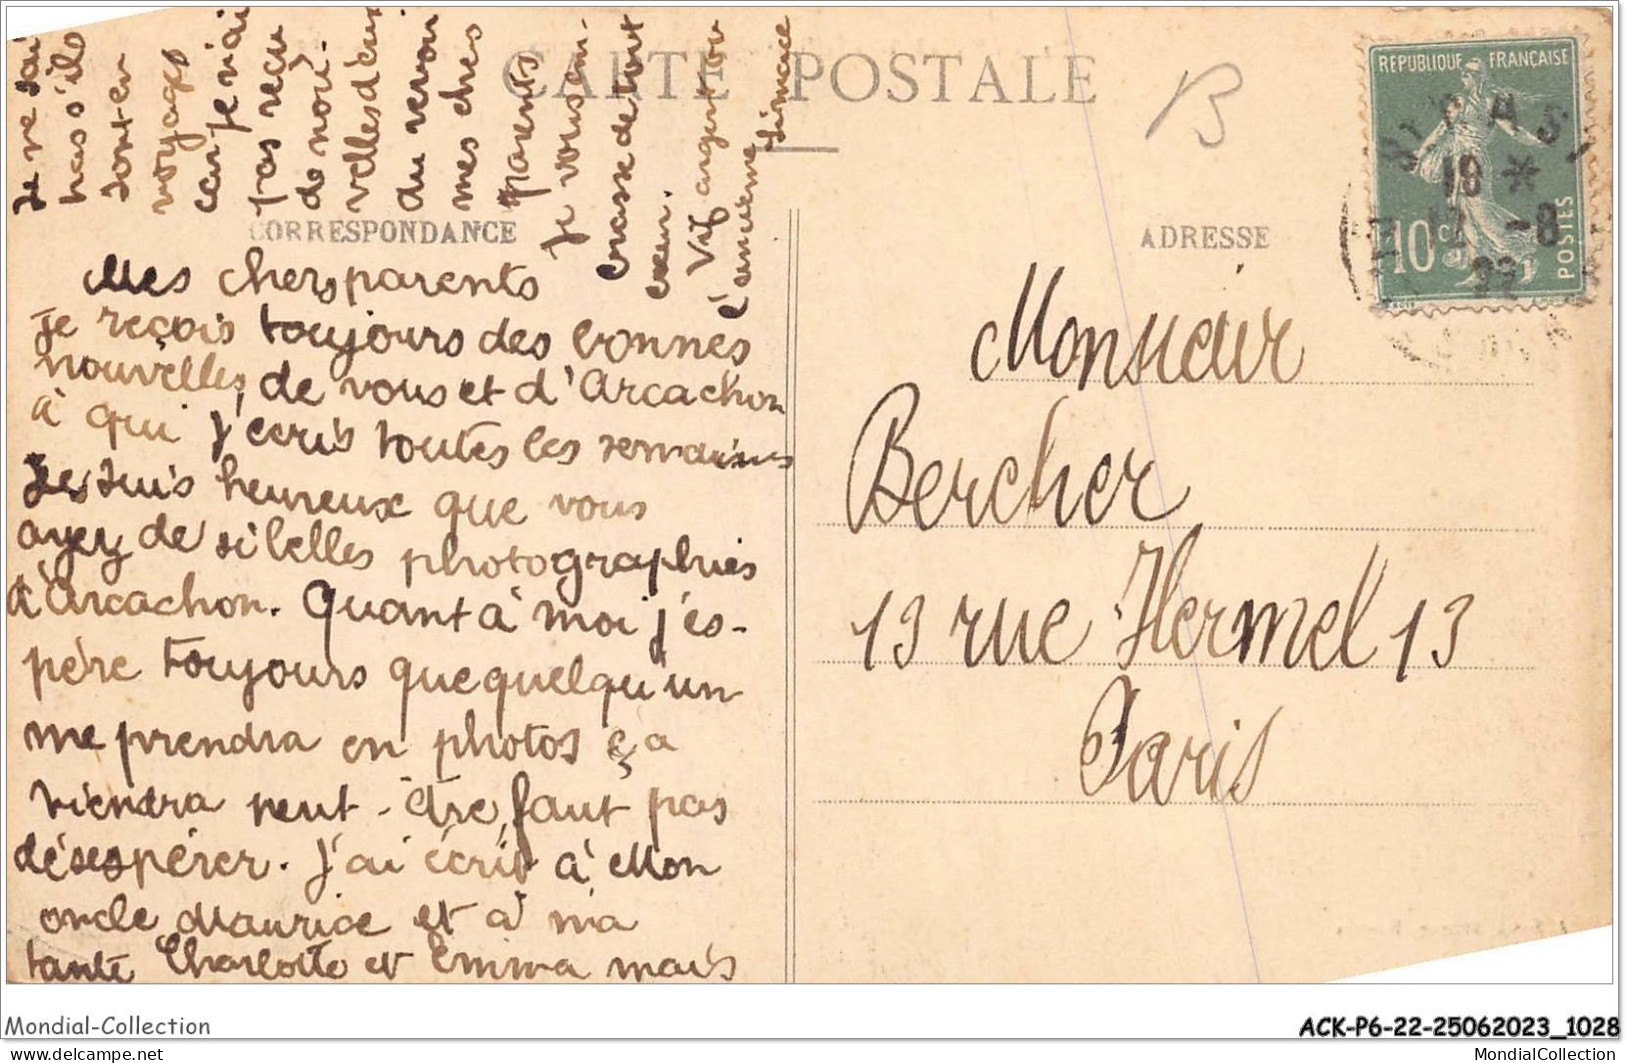 CARTE POSTALE
B
CORRESPONDANCE
ADRESSE
Mes chers parents
Je reçois toujours des bonnes
nouvelles, de vous et d'Arcachon
à qui j'écris toutes les semaines
Je suis heureux que vous
ayez de si belles photographies
d'Arcachon. Quant à moi j'es-
père toujours que quelqu'un
me prendra en photos ça
viendra peut-être, faut pas
désespérer. J'ai écrit à Mon
oncle Maurice et à ma
tante Charlotte et Emma mais
Je ne sai
pas s'ils
sont en
voyages
car je n'ai
pas reçu
de nou-
velles d'eux
Au revoir
mes chers
parents
Je vous em-
brasse de tout
cœur.
Monsieur
Bercher
13 rue Hermel 13
Paris
REPUBLIQUE FRANÇAISE
10c
POSTES
18 *
12 -8
Mondial-Collection
ACK-P6-22-25062023_1028
www.delcampe.net
MondialCollection